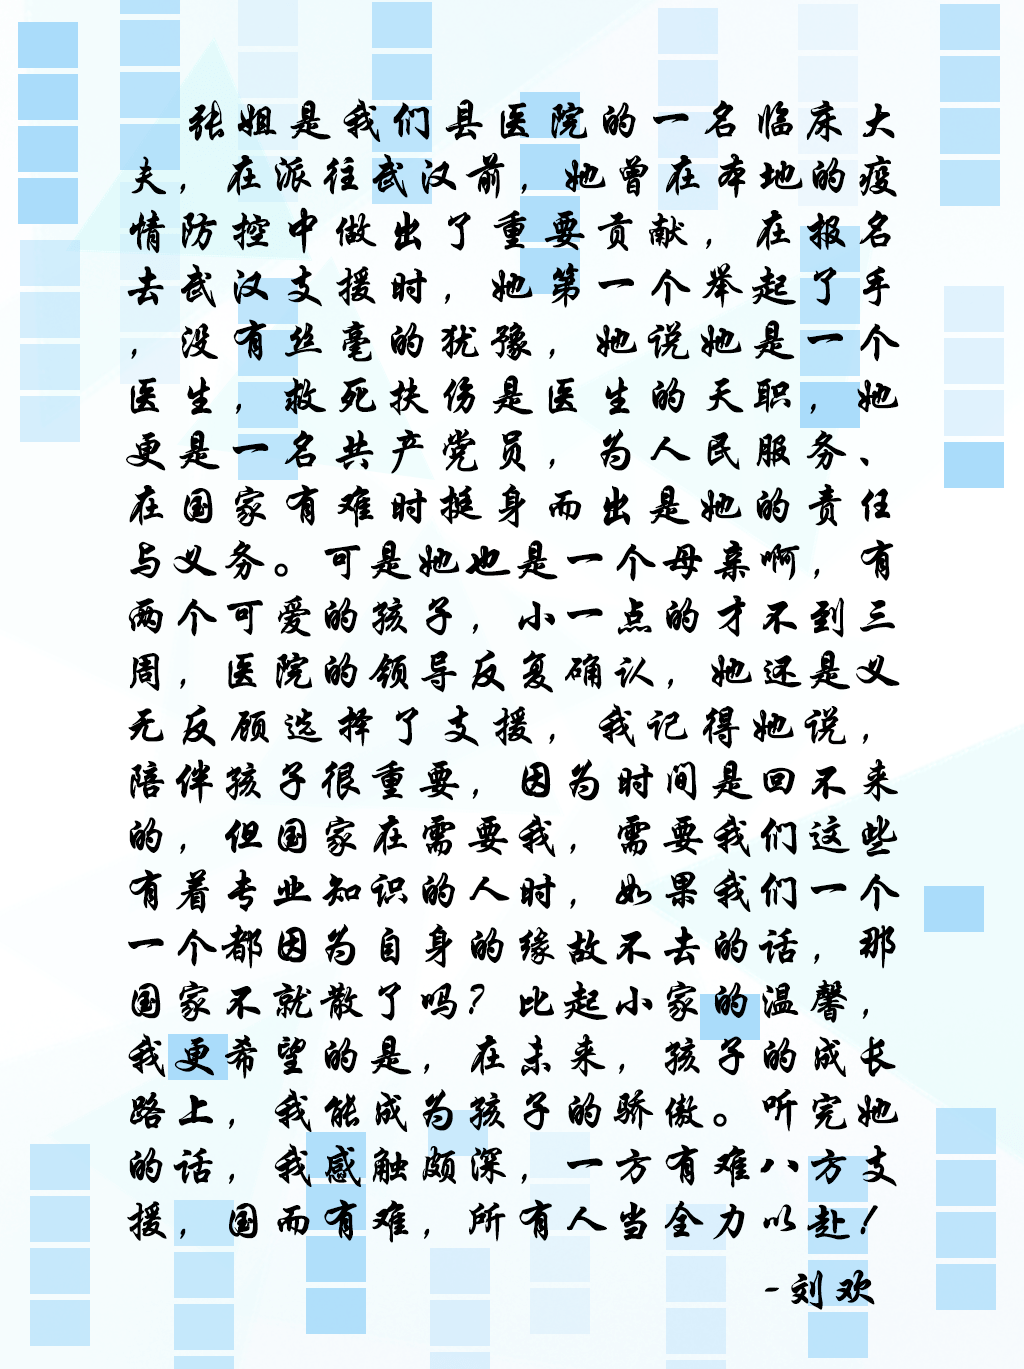 张姐是我们县医院的一名临床大
夫，在派往武汉前，她曾在本地的疫
情防控中做出了重要贡献，在报名
去武汉支援时，她第一个举起了手
，没有丝毫的犹豫，她说她是一个
医生，救死扶伤是医生的天职，她
更是一名共产党员，为人民服务、
在国家有难时挺身而出是她的责任
与义务。可是她也是一个母亲啊，有
两个可爱的孩子，小一点的才不到三
周，医院的领导反复确认，她还是义
无反顾选择了支援，我记得她说，
陪伴孩子很重要，因为时间是回不来
的，但国家在需要我，需要我们这些
有着专业知识的人时，如果我们一个
一个都因为自身的缘故不去的话，那
国家不就散了吗？比起小家的温馨，
我更希望的是，在未来，孩子的成长
路上，我能成为孩子的骄傲。听完她
的话，我感触颇深，一方有难八方支
援，国而有难，所有人当全力以赴！
-刘欢